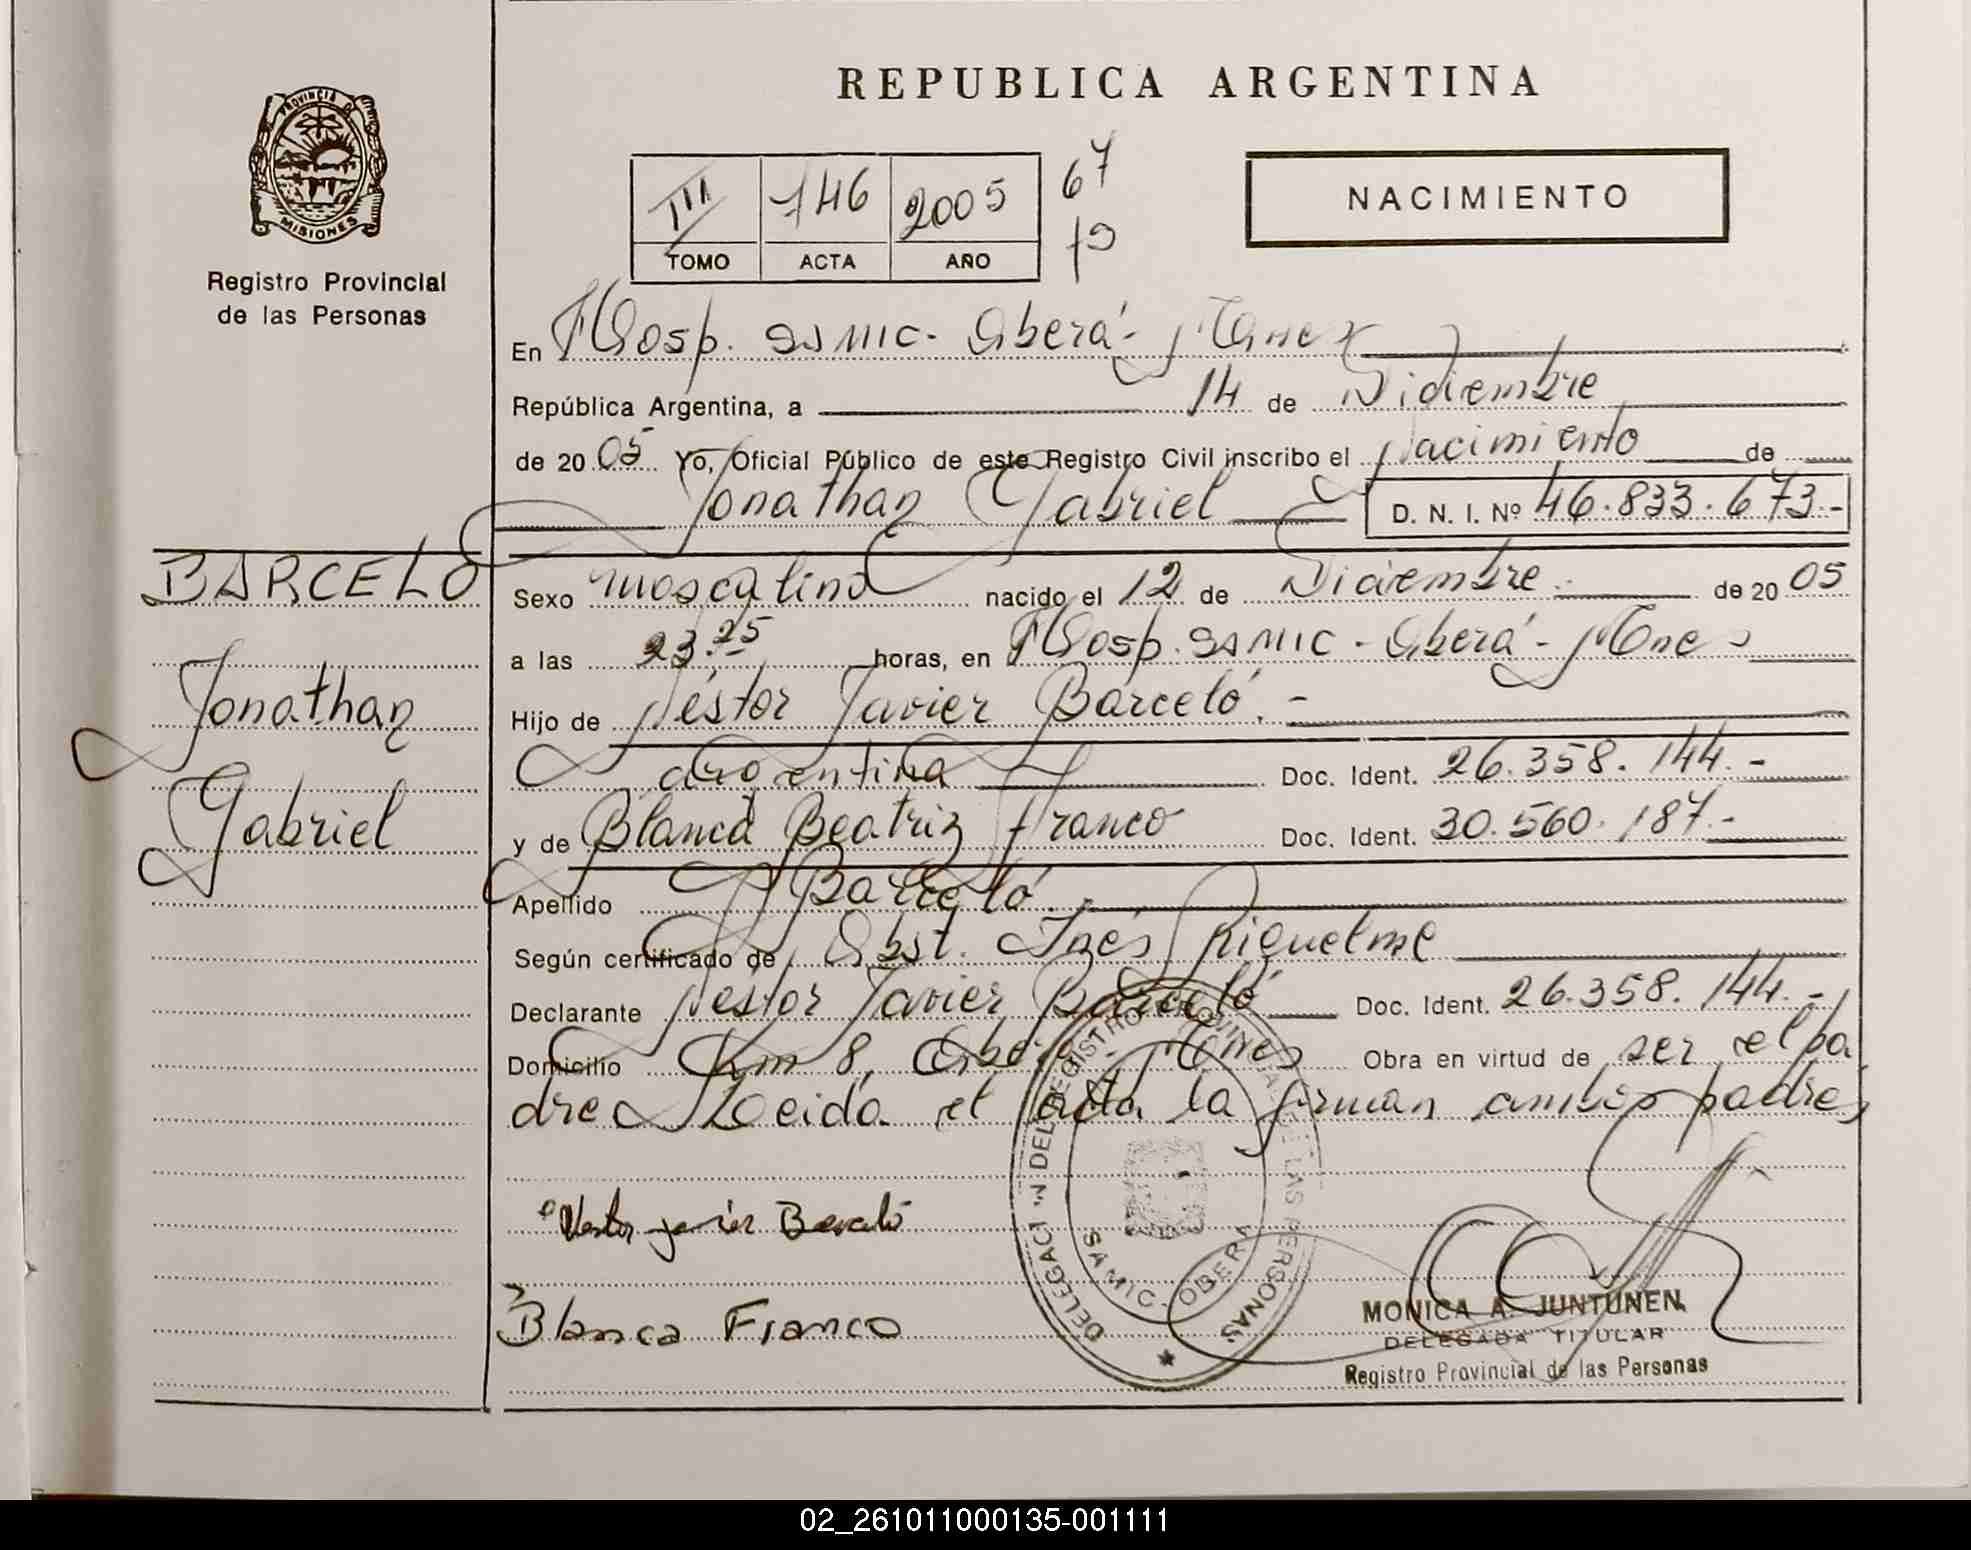 REPUBLICA ARGENTINA
PROVINCIA DE MISIONES
Registro Provincial
de las Personas
III 746 2005
TOMO ACTA AÑO
67
79
NACIMIENTO
En Hosp. SAMIC - Oberá - Mnes
República Argentina, a 14 de Diciembre
de 2005 Yo, Oficial Público de este Registro Civil inscribo el Nacimiento de
Jonathan Gabriel D. N. I. Nº 46.833.673.-
BARCELO
Jonathan
Gabriel
Sexo masculino nacido el 12 de Diciembre de 2005
a las 23.25 horas, en Hosp. SAMIC - Oberá - Mnes
Hijo de Néstor Javier Barceló.-
argentina Doc. Ident. 26.358.144.-
y de Blanca Beatriz Franco Doc. Ident. 30.560.187.-
Apellido Barceló.
Según certificado de Obst. Inés Riquelme
Declarante Néstor Javier Barceló Doc. Ident. 26.358.144.-
Domicilio Km 8, Oberá - Mnes Obra en virtud de ser el pa
dre Leida el acta la firman ambos padres
Nestor javier Barceló
Blanca Franco
DELEGACION DEL REGISTRO PROVINCIAL DE LAS PERSONAS
SAMIC - OBERA
MONICA A. JUNTUNEN
DELEGADA TITULAR
Registro Provincial de las Personas
02_261011000135-001111